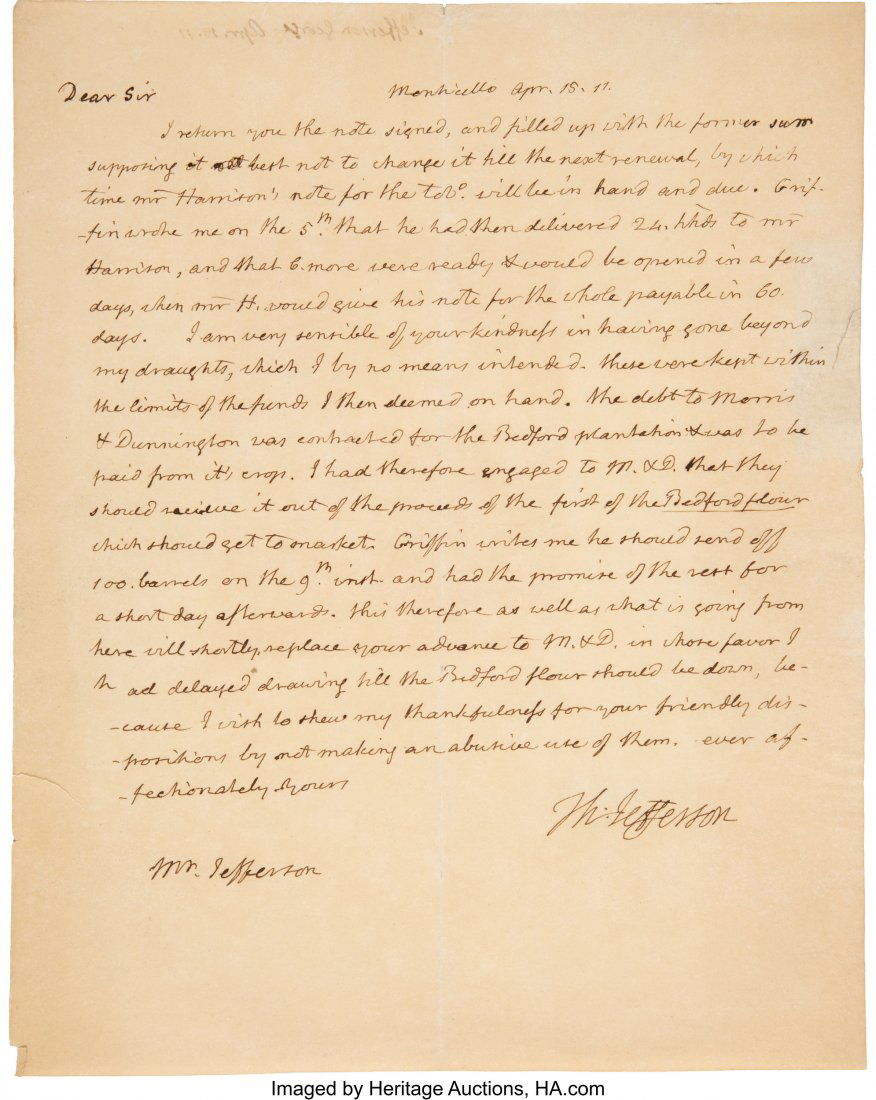 Dear Sir Monticello Apr. 15. 11.
I return you the note signed, and filled up with the former sum
supposing it best not to change it till the next renewal, by which
time mr Harrison's note for the tobo. will be in hand and due. Grif-
-fin wrote me on the 5th. that he had then delivered 24. hhds to mr
Harrison, and that 6. more were ready & would be opened in a few
days, when mr H. would give his note for the whole payable in 60.
days. I am very sensible of your kindness in having gone beyond
my draughts, which I by no means intended. these were kept within
the limits of the funds I then deemed on hand. the debt to Morris
& Dunnington was contracted for the Bedford plantation & was to be
paid from it's crop. I had therefore engaged to M. & D. that they
should recieve it out of the proceeds of the first of the Bedford flour
which should get to market. Griffin writes me he should send off
100. barrels on the 9th. inst. and had the promise of the rest for
a short day afterwards. this therefore as well as what is going from
here will shortly replace your advance to M. & D. in whose favor I
had delayed drawing till the Bedford flour should be down, be-
-cause I wish to shew my thankfulness for your friendly dis-
-positions by not making an abusive use of them. ever af-
-fectionately yours
Th: Jefferson
Mr. Jefferson
Imaged by Heritage Auctions, HA.com